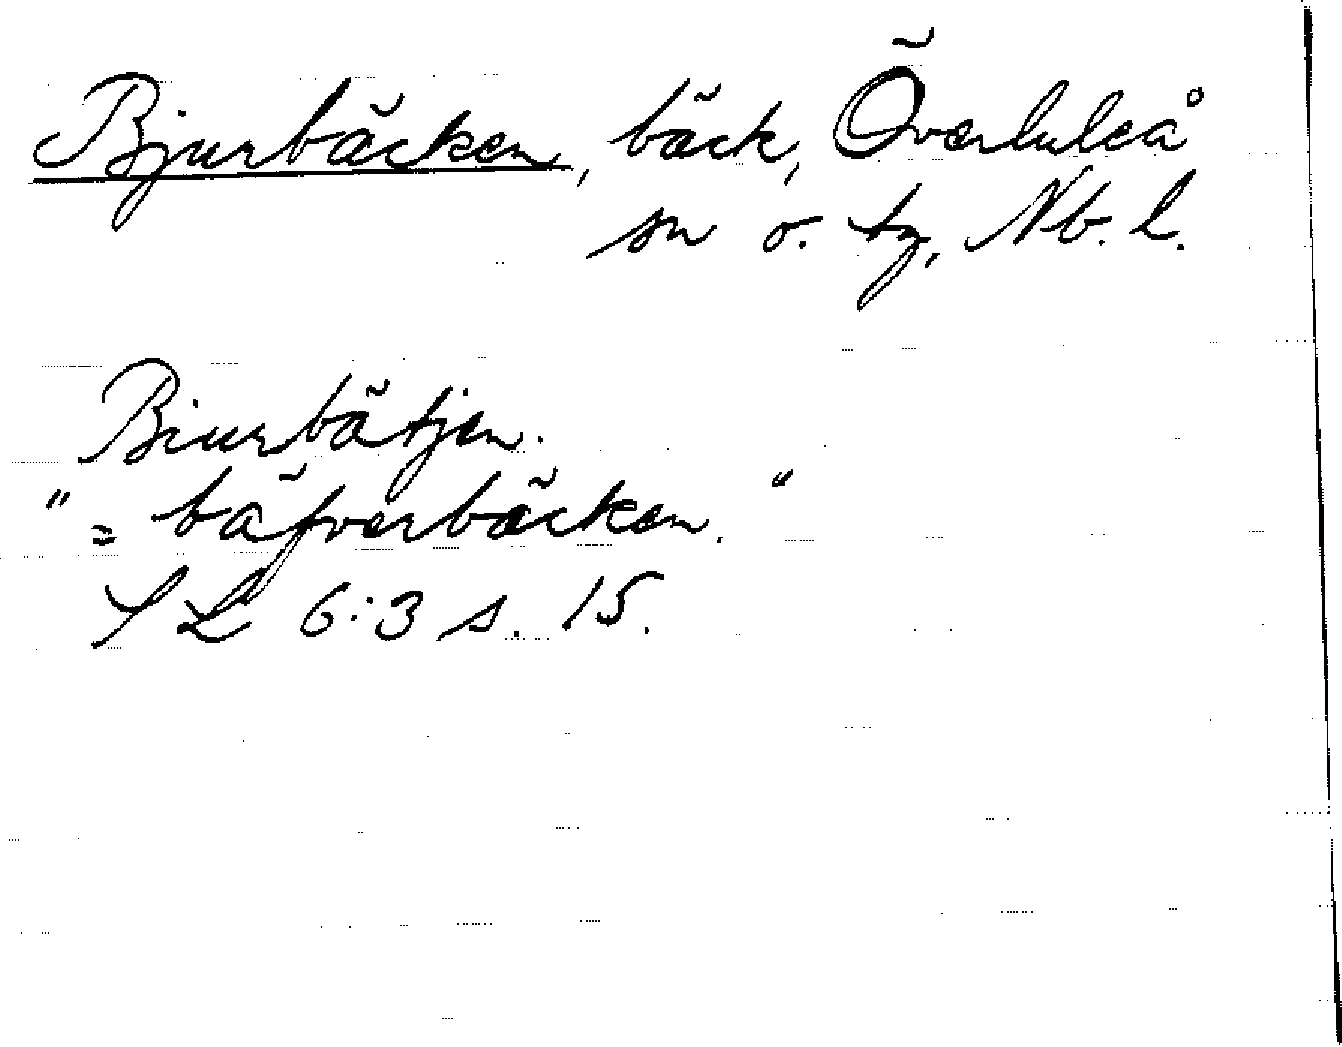 Bjurbäcken, bäck, Överluleå
sn o. tg, Nb. l.
Biurbätjen.
" = bäfverbäcken. "
SL 6:3 s. 15.